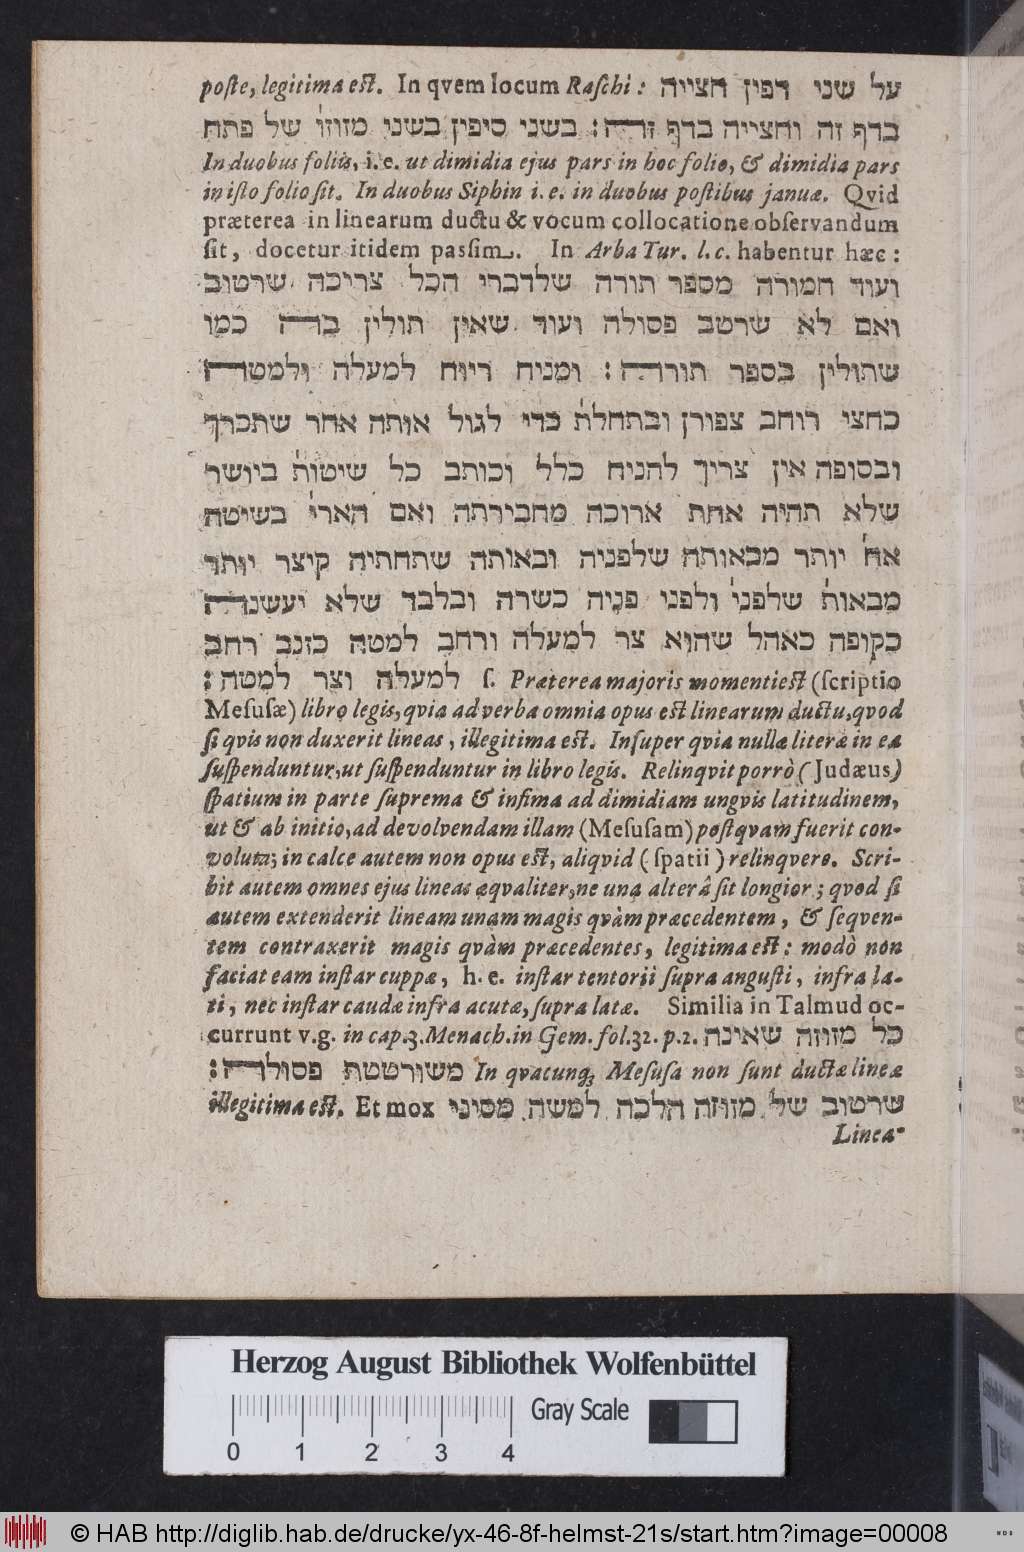 poſte, legitima eſt. In qvem locum Raſchi: על שני דפין חצייה
בדף זה וחצייה בדף זה: בשני סיפין בשני מזוזו׳ של פתח
In duobus foliis, i. e. ut dimidia ejus pars in hoc folio, & dimidia pars
in iſto folio ſit. In duobus Siphin i. e. in duobus poſtibus januæ. Qvid
præterea in linearum ductu & vocum collocatione obſervandum
ſit, docetur itidem paſſim. In Arba Tur. l. c. habentur hæc:
ועוד חמורה מספר תורה שלדברי הכל צריכה שרטוב
ואם לא שרטב פסולה ועוד שאין תולין בה כמו
שתולין בספר תורה: ומניח ריוח למעלה ולמטה
כחצי רוחב צפורן ובתחלת׳ כדי לגול אותה אחר שתכרך
ובסופה אין צריך להניח כלל וכותב כל שיטות׳ ביושר
שלא תהיה אחת ארוכה מחבירתה ואם הארי׳ בשיטה
אח׳ יותר מבאותה שלפניה ובאותה שתחתיה קיצר יותר
מבאות׳ שלפני׳ ולפני פניה כשרה ובלבד שלא יעשנה
כקופה כאהל שהוא צר למעלה ורחב למטה כזנב רחב
למעלה וצר למטה: ſ. Præterea majoris momenti eſt (ſcriptio
Meſuſæ) libro legis, qvia ad verba omnia opus eſt linearum ductu, qvod
ſi qvis non duxerit lineas, illegitima eſt. Inſuper qvia nullæ literæ in ea
ſuſpenduntur, ut ſuſpenduntur in libro legis. Relinqvit porrò (Judæus)
ſpatium in parte ſuprema & infima ad dimidiam ungvis latitudinem,
ut & ab initio, ad devolvendam illam (Meſuſam) poſtqvam fuerit con-
voluta; in calce autem non opus eſt, aliqvid (ſpatii) relinqvere. Scri-
bit autem omnes ejus lineas æqvaliter, ne una alterâ ſit longior; qvod ſi
autem extenderit lineam unam magis qvàm præcedentem, & ſeqven-
tem contraxerit magis qvàm præcedentes, legitima eſt: modò non
faciat eam inſtar cuppæ, h. e. inſtar tentorii ſupra anguſti, infra la-
ti, nec inſtar caudæ infra acutæ, ſupra latæ. Similia in Talmud oc-
currunt v. g. in cap. 3. Menach. in Gem. fol. 32. p. 2. כל מזוזה שאינה
משורטטת פסולה: In qvacunqꝫ Meſuſa non ſunt ductæ lineæ
illegitima eſt. Et mox שרטוב של מזוזה הלכה למשה מסיני
Linea-
Herzog August Bibliothek Wolfenbüttel
Gray Scale
0 1 2 3 4
© HAB http://diglib.hab.de/drucke/yx-46-8f-helmst-21s/start.htm?image=00008